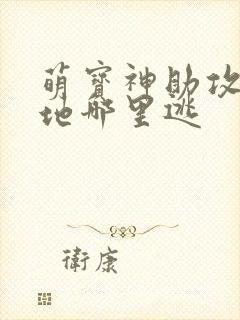 萌寶神助攻
地哪里逃
衛康